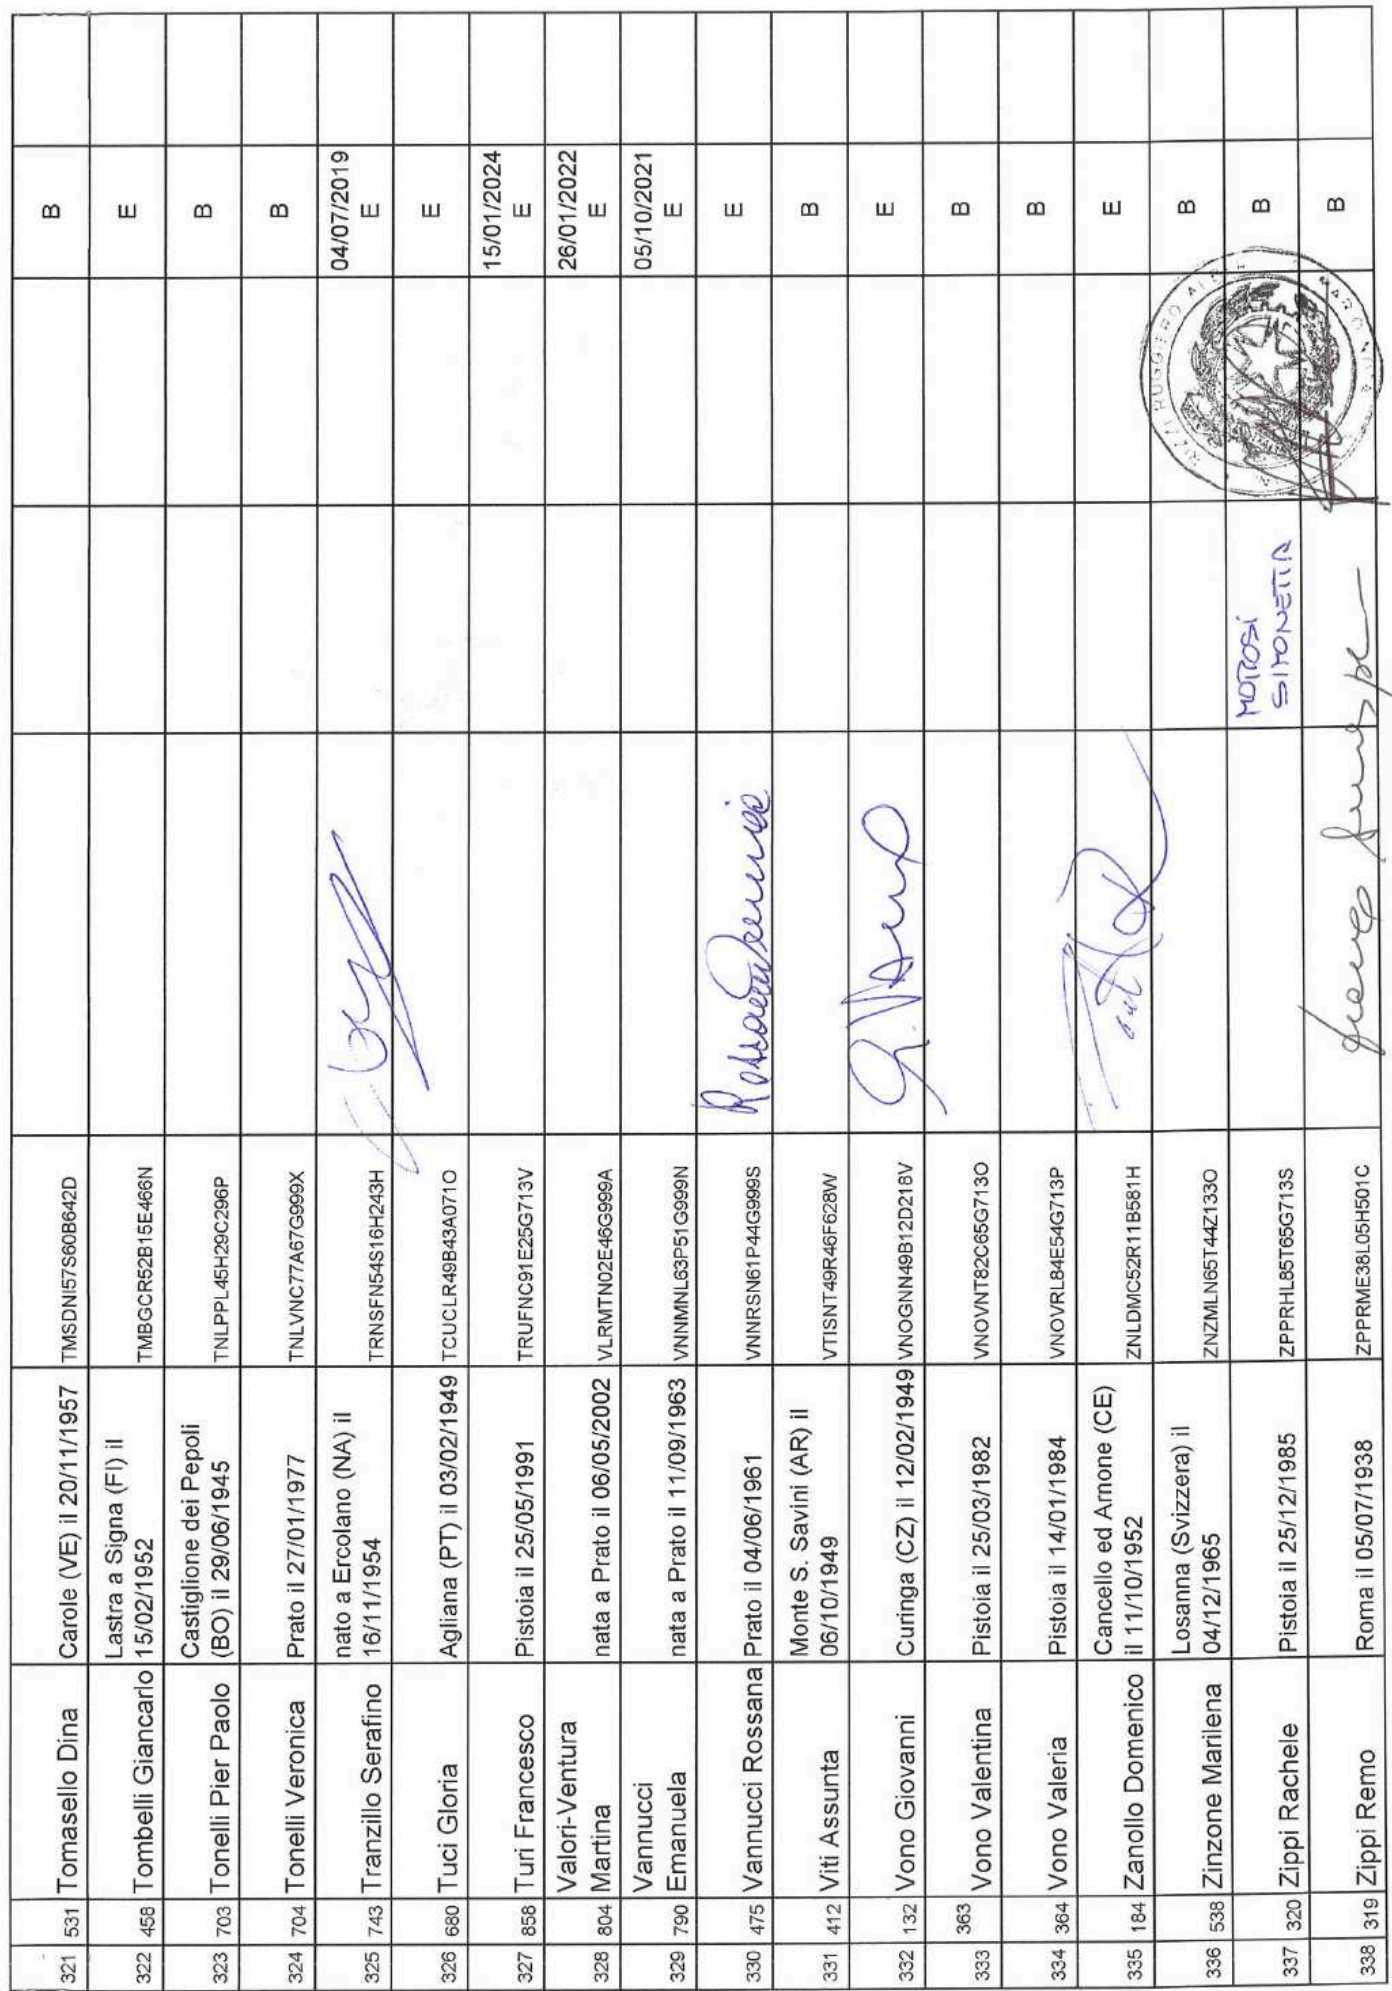 321 531 Tomasello Dina Carole (VE) il 20/11/1957 TMSDNI57S60B642D B
322 458 Tombelli Giancarlo Lastra a Signa (FI) il
15/02/1952 TMBGCR52B15E466N E
323 703 Tonelli Pier Paolo Castiglione dei Pepoli
(BO) il 29/06/1945 TNLPPL45H29C296P B
324 704 Tonelli Veronica Prato il 27/01/1977 TNLVNC77A67G999X B
325 743 Tranzillo Serafino nato a Ercolano (NA) il
16/11/1954 TRNSFN54S16H243H 04/07/2019
E
326 680 Tuci Gloria Agliana (PT) il 03/02/1949 TCUCLR49B43A071O E
327 858 Turi Francesco Pistoia il 25/05/1991 TRUFNC91E25G713V 15/01/2024
E
328 804 Valori-Ventura
Martina nata a Prato il 06/05/2002 VLRMTN02E46G999A 26/01/2022
E
329 790 Vannucci
Emanuela nata a Prato il 11/09/1963 VNNMNL63P51G999N 05/10/2021
E
330 475 Vannucci Rossana Prato il 04/06/1961 VNNRSN61P44G999S E
331 412 Viti Assunta Monte S. Savini (AR) il
06/10/1949 VTISNT49R46F628W B
332 132 Vono Giovanni Curinga (CZ) il 12/02/1949 VNOGNN49B12D218V G. Vono E
333 363 Vono Valentina Pistoia il 25/03/1982 VNOVNT82C65G713O B
334 364 Vono Valeria Pistoia il 14/01/1984 VNOVRL84E54G713P B
335 184 Zanollo Domenico Cancello ed Arnone (CE)
il 11/10/1952 ZNLDMC52R11B581H E
336 538 Zinzone Marilena Losanna (Svizzera) il
04/12/1965 ZNZMLN65T44Z133O B
337 320 Zippi Rachele Pistoia il 25/12/1985 ZPPRHL85T65G713S SIMONETTA B
338 319 Zippi Remo Roma il 05/07/1938 ZPPRME38L05H501C B
RUGGERO